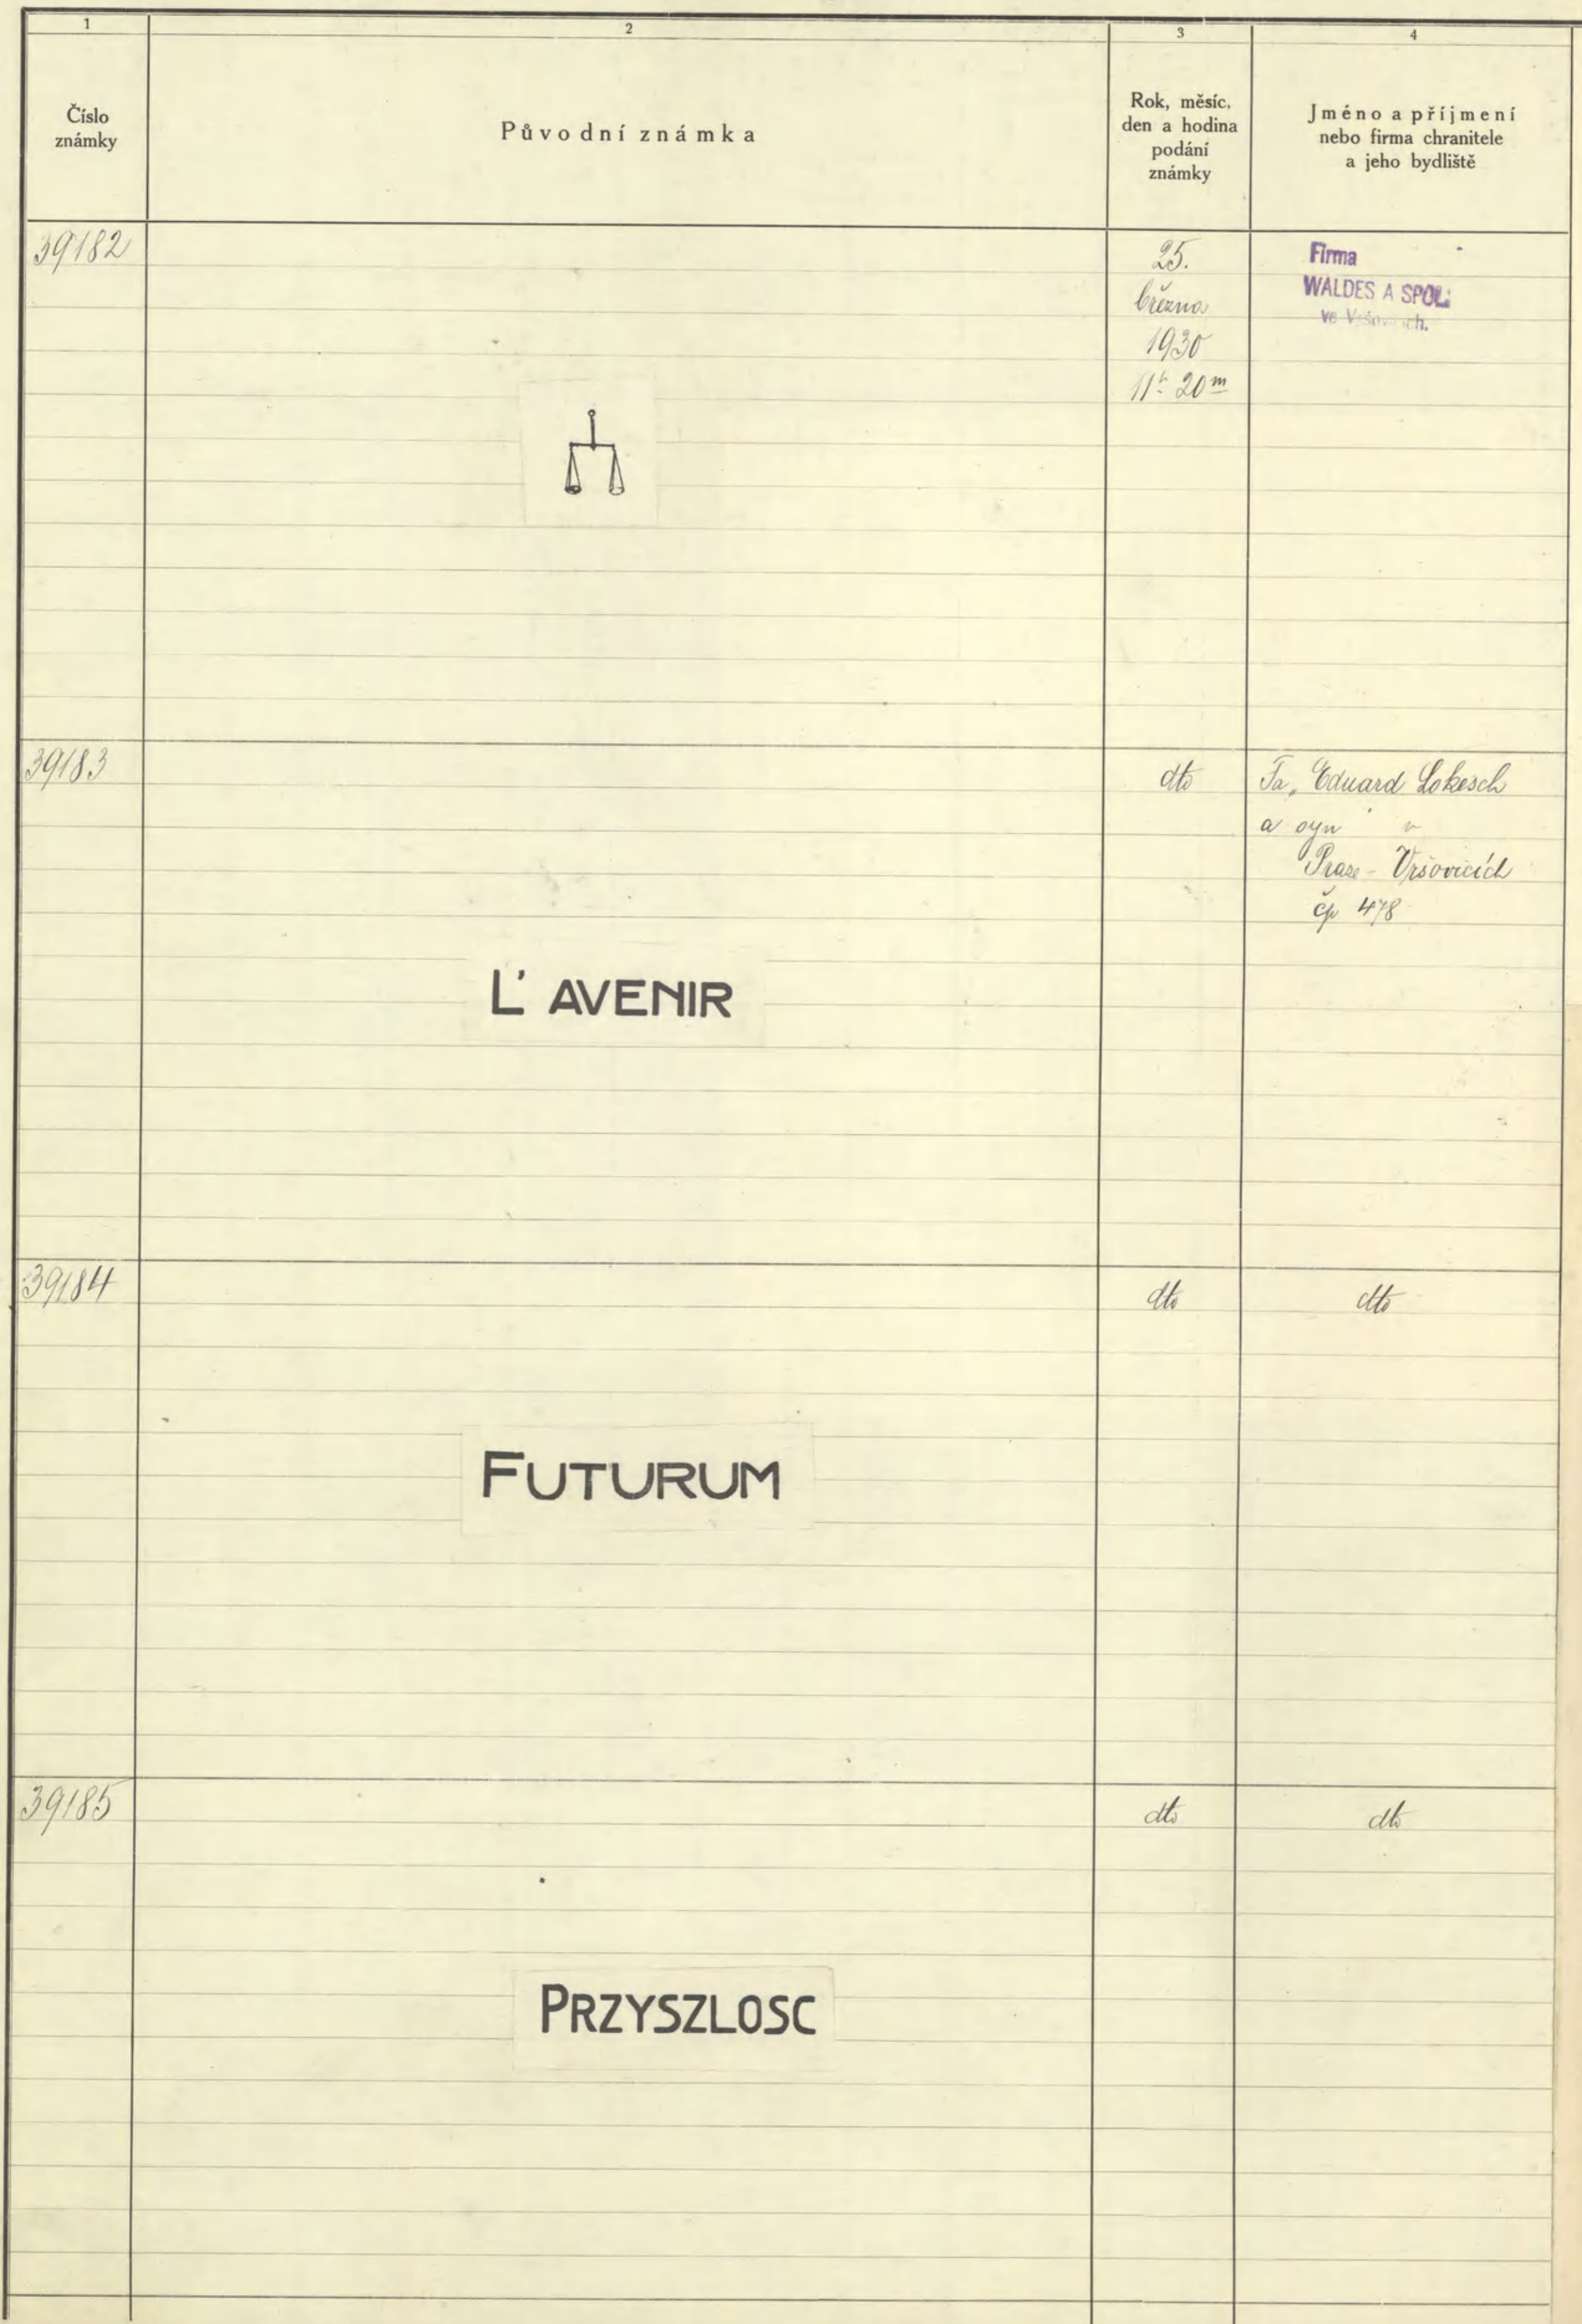 1
2
3
4
Číslo
známky
Původní známka
Rok, měsíc,
den a hodina
podání
známky
Jméno a příjmení
nebo firma chranitele
a jeho bydliště
39182
25.
března
1930
11h 20m
Firma
WALDES A SPOL.
ve
39183
L' AVENIR
dto
Fa. Eduard Lokesch
a syn v
Praze - Vršovicích
čp 478
39184
FUTURUM
dto
dto
39185
PRZYSZLOSC
dto
dto